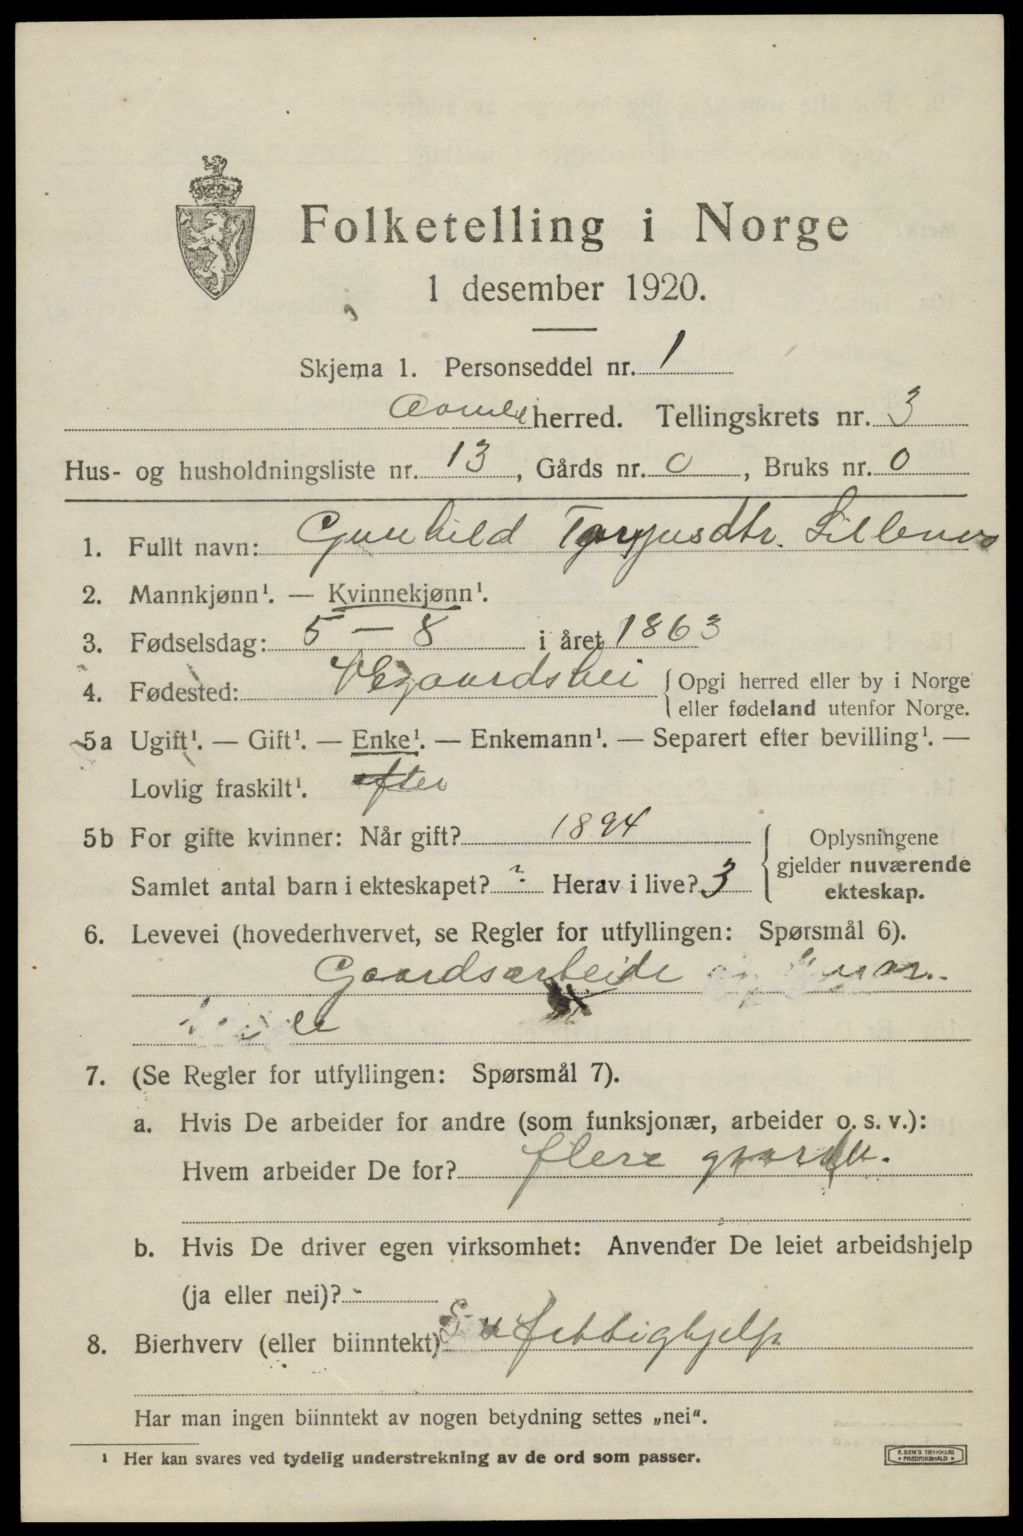 Folketelling i Norge
1 desember 1920.
Skjema 1. Personseddel nr. 1
herred. Tellingskrets nr. 3
Hus- og husholdningsliste nr. 13, Gårds nr. 0, Bruks nr. 0
1. Fullt navn: Gunhild Torjusdtr.
2. Mannkjønn¹. — Kvinnekjønn¹.
3. Fødselsdag: 5 — 8 i året 1863
4. Fødested: Vegaardshei { Opgi herred eller by i Norge
eller fødeland utenfor Norge.
5a Ugift¹. — Gift¹. — Enke¹. — Enkemann¹. — Separert efter bevilling¹. —
Lovlig fraskilt¹. efter
5b For gifte kvinner: Når gift? 1894
Samlet antal barn i ekteskapet? ? Herav i live? 3
{ Oplysningene
gjelder nuværende
ekteskap.
6. Levevei (hovederhvervet, se Regler for utfyllingen: Spørsmål 6).
Gaardsarbeide
7. (Se Regler for utfyllingen: Spørsmål 7).
a. Hvis De arbeider for andre (som funksjonær, arbeider o. s. v.):
Hvem arbeider De for? flere
b. Hvis De driver egen virksomhet: Anvender De leiet arbeidshjelp
(ja eller nei)? -
8. Bierhverv (eller biinntekt) fattighjelp
Har man ingen biinntekt av nogen betydning settes „nei".
¹ Her kan svares ved tydelig understrekning av de ord som passer.
F. SEM'S TRYKKERI
FREDRIKSHALD